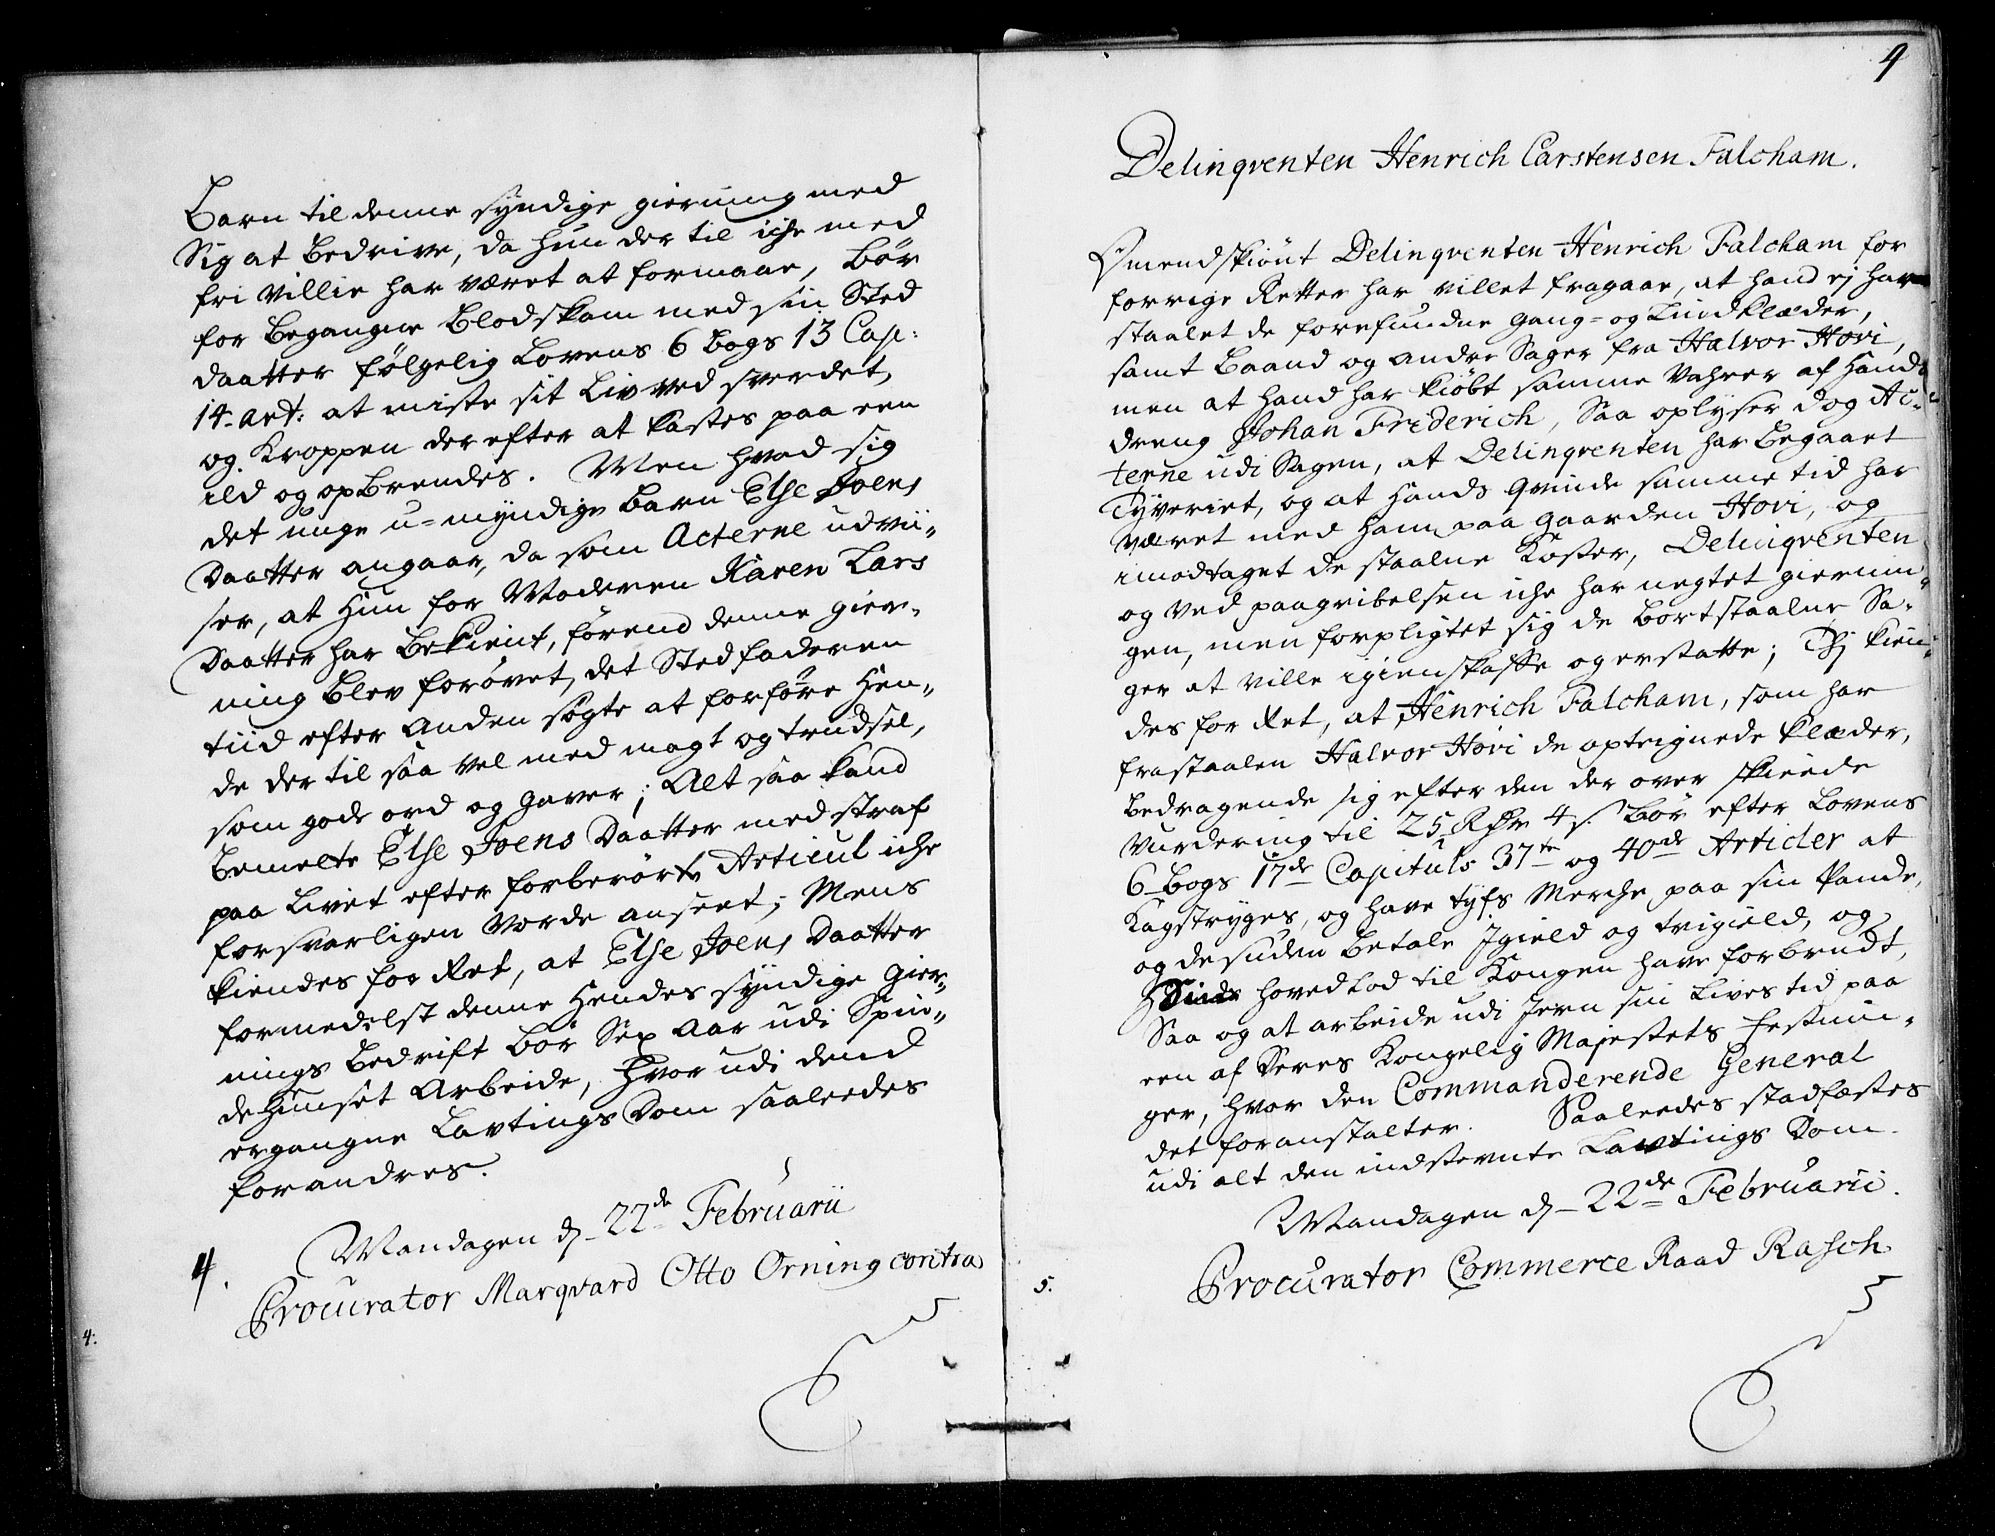 Barn til denne syndige gierning med
Sig at Bedrive, da hun der til iche med
fri Villie har været at formaae, Bør
for Begangne Blodskam med sin Sted
daatter følgelig Lovens 6 Bogs 13 Cap:
14. Art: at miste sit Liv ved sverdet,
og Kroppen der efter at kastes paa een
ild og opbrendes. Men hvad sig
det unge u=myndige Barn Else Joens
Daatter angaar, da som Acterne udvii„
ser, at Hun for Moderen Karen Lars
Daatter har Bekient, førend denne gier„
ning Blev forøvet, det Stedfaderen
tiid efter anden søgte at forføre Hen„
de der til saa vel med magt og trudsel,
som gode ord og gaver; Alt saa kand
bemelte Else Joens Daatter med straf
paa Livet efter forberørte Articul iche
forsvarligen vorde anseet; Mens
kiendes for Ret, at Else Joens Daatter
formedelst denne Hendes syndige Gier„
nings Bedrift Bør Sex Aar udi Spin„
dehuuset Arbeide, hvor udi dend
ergangne Lavtings Dom saaleedes
forandres.
Mandagen d. 22de Februarii
4.
Procurator Marqvard Otto Orning contra
4:
9
Delinqventen Henrich Carstensen Falcham.
Omendskiønt Delinqventen Henrich Falcham for
forrige Retter har villet fragaae, at hand ej har
staalet de forefundne Gang= og Liindklæder,
samt Baand og andre Sager fra Halvor Hovi,
men at hand har kiøbt samme Vahrer af Hands
dreng Johan Friderich, Saa oplyser dog Ac„
terne udi Sagen, at Delinqventen har Begaaet
Tyveriet, og at Hands qvinde samme tid har
været med Ham paa gaarden Hovi, og
imodtaget de staalne Koster, Delinqventen
og ved paagribelsen iche har negtet giernin„
gen, men forpligtet sig de Bortstaalne Sa„
ger at ville igienskaffe og erstatte; Thj kien„
des for Ret, at Henrich Falcham, som har
frastaalen Halvor Hovi de optegnede klæder,
Bedragende sig efter den der over skeede
Vurdering til 25 Rdr 4 s. Bør efter Lovens
6 Bogs 17de Capituls 37te og 40de Articler at
Kagstryges, og have tyfs Merche paa sin Pande,
og desuden Betale Igield og tvigield, og
Sinds hovedLod til Kongen have forbrudt,
Saa og at arbeide udi Jern sin Lives tid paa
een af Deres Kongelig Majestets Festnin„
ger, hvor den Commanderende General
det foranstalter. Saaleedes stadfæstes
udi alt den indstevnte Lavtings Dom.
Mandagen d. 22de Februarii.
5.
Procurator Commerce Raad Rasch